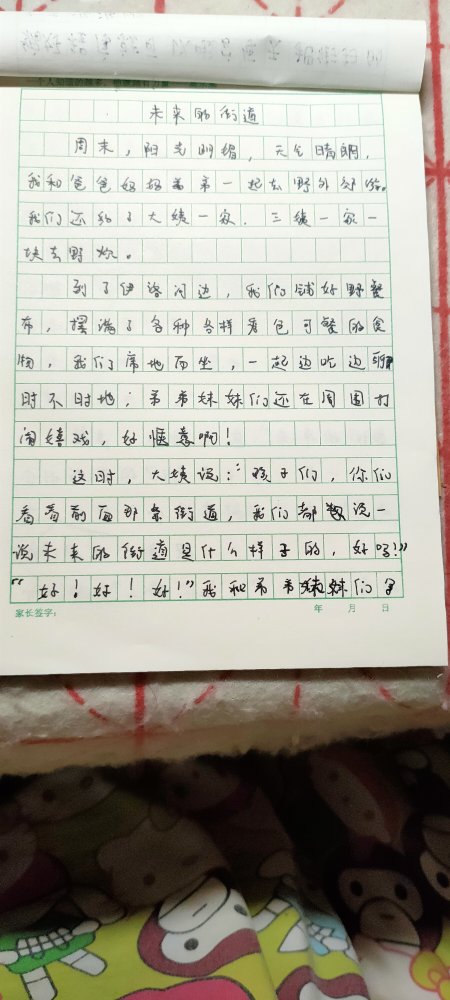 未来的街道
周末，阳光明媚，天气晴朗，
我和爸爸妈妈弟弟一起去野外郊游。
我们还约了大姨一家．三姨一家一
块去野炊。
到了伊洛河边，我们铺好野餐
布，摆满了各种各样秀色可餐的食
物，我们席地而坐，一起边吃边聊
时不时地；弟弟妹妹们还在周围打
闹嬉戏，好惬意啊！
这时，大姨说：“孩子们，你们
看看前面那条街道，我们都说一
说未来的街道是什么样子的，好吗！”
“好！好！好！”我和弟弟妹妹们
家长签字：
年 月 日